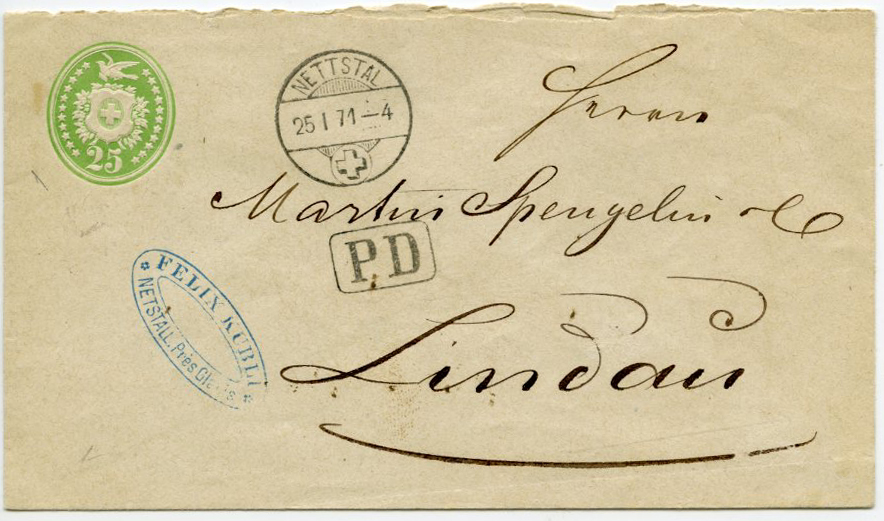 25
NETTSTAL
25 I 71—4
Herrn
Martin Spengelin &C
PD
* FELIX KUBLI *
NETSTALL. Près Glaris
Lindau